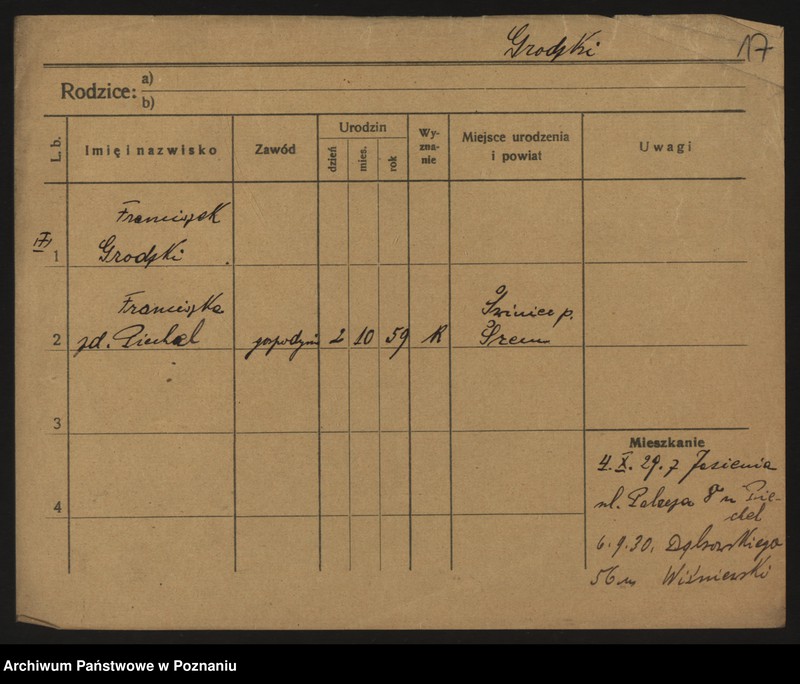 Grodzki
17
Rodzice: a)
b)
L. b.
Imię i nazwisko
Zawód
Urodzin
dzień
mies.
rok
Wy-
zna-
nie
Miejsce urodzenia
i powiat
Uwagi
Franciszek
1 Grodzki
Franciszka
2 zd. Piechel gospodyni 2 10 59 K
p.
Śrem
3
4
Mieszkanie
4. X. 29. z Jasienia
ul. 8 m Pie-
chel
6.9.30. Dąbrowskiego
56 m Wiśniewski
Archiwum Państwowe w Poznaniu